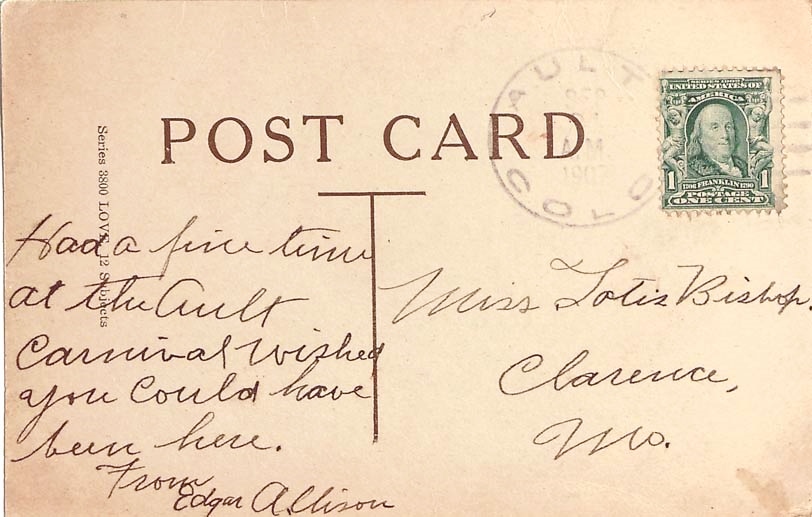 POST CARD
AULT
SEP
AM
1907
COLO
SERIES 1902
UNITED STATES OF
AMERICA
1706 FRANKLIN 1790
1 1
POSTAGE
ONE CENT
Series 3800 LOVE 12 Subjects
Had a fine time
at the Ault
Carnival Wished
you Could have
been here.
From
Edgar Allison
Miss Lotis Bishop.
Clarence,
Mo.